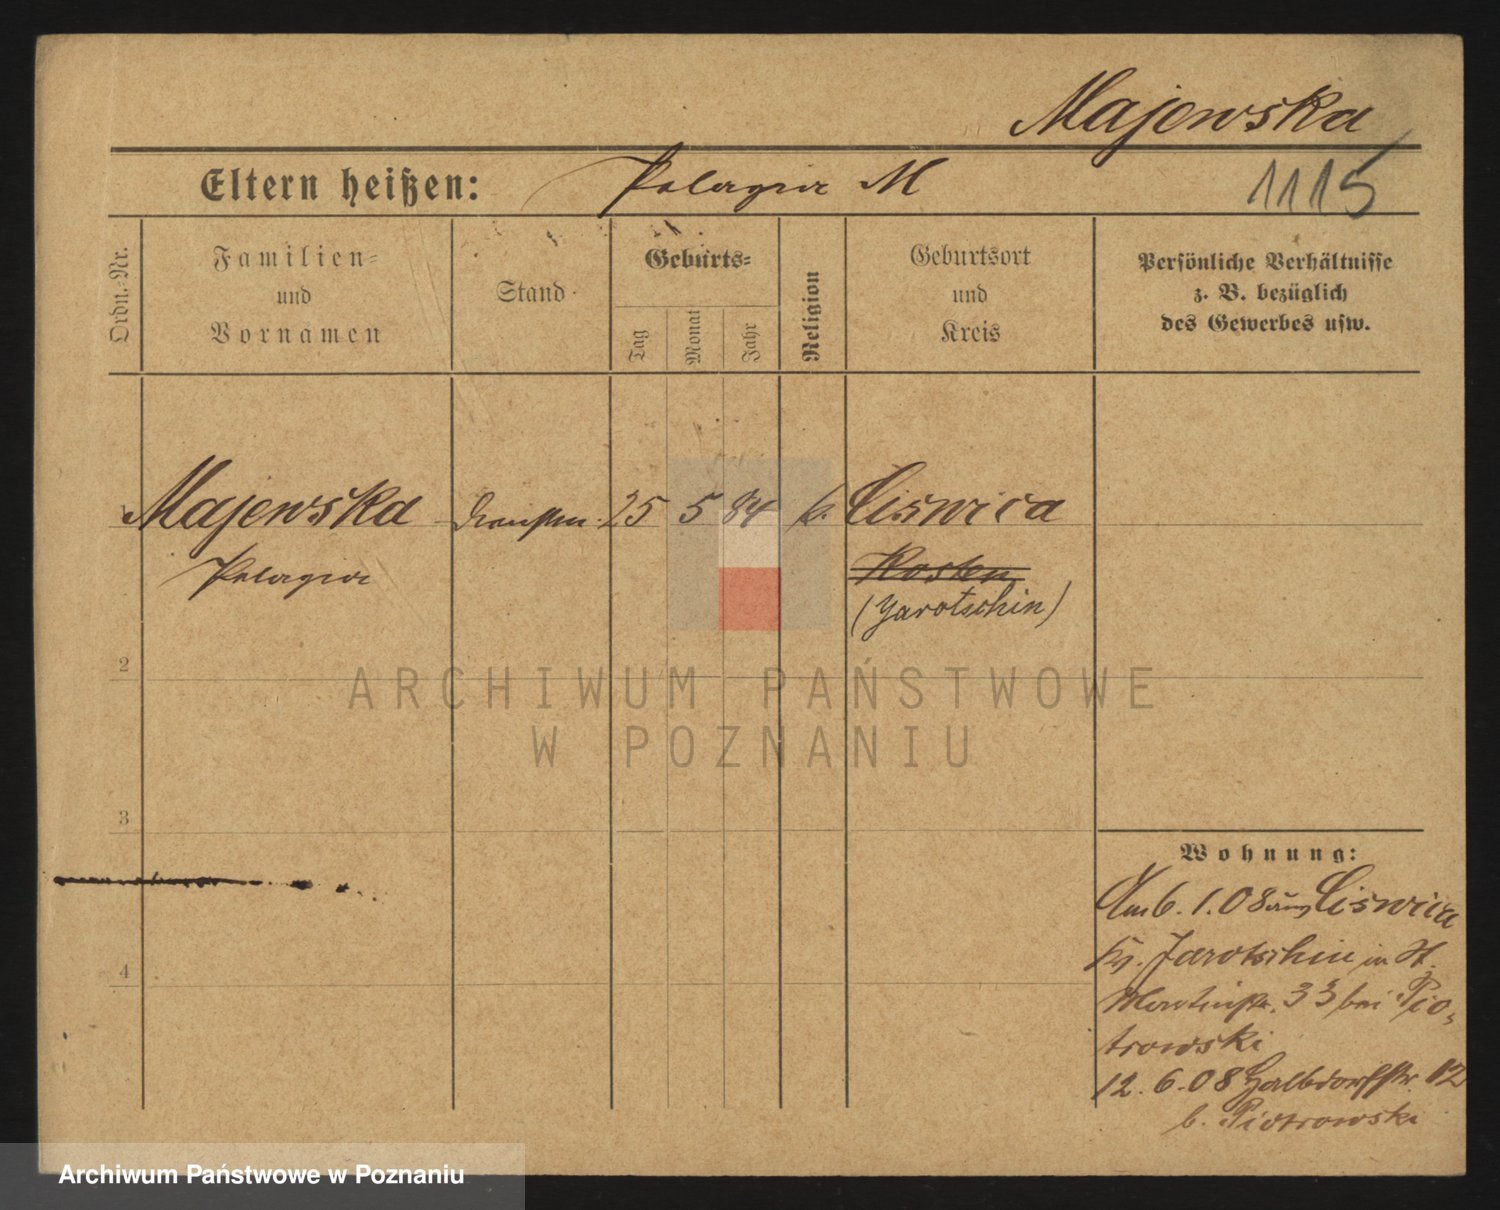 Majewska
Eltern heißen: Pelagia M
1115
Ordn.-Nr.
Familien-
und
Vornamen
Stand
Geburts-
Tag
Monat
Jahr
Religion
Geburtsort
und
Kreis
Persönliche Verhältnisse
z. B. bezüglich
des Gewerbes usw.
1 Majewska 25 5 84 k. Ciswica
Pelagia Kosten
(Jarotschin)
2
ARCHIWUM PAŃSTWOWE
W POZNANIU
3
Wohnung:
Am 6. 1. 08 aus Ciswica
Kr. Jarotschin in St.
4
Martinstr. 33 bei Pio-
trowski
12. 6. 08 Halbdorfstr. 12
b. Piotrowski
Archiwum Państwowe w Poznaniu